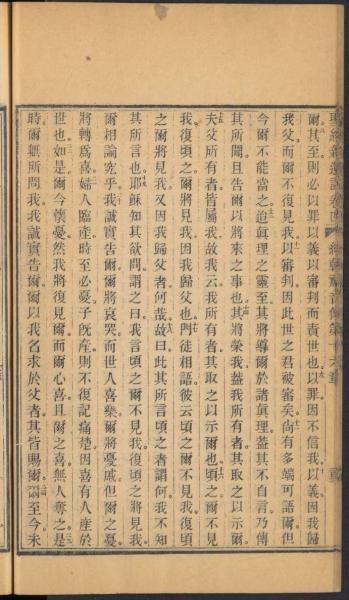 爾其至則必以罪以義以審判而責世也以罪因不信我以義因我歸
我父而爾不復見我以審判因此世之君被審矣尚有多端可語爾但
今爾不能當之迨眞理之靈至其將導爾於諸眞理蓋其不自言乃傳
其所聞且告爾以將來之事也其將榮我蓋我所有者其取之以示爾
夫父所有者皆屬我故我云我所有者其取之以示爾也頃之爾不見
我復頃之爾將見我因我歸父也門徒相語彼云頃之爾不見我復頃
之爾將見我又因我歸父者何哉故曰此其所言頃之者謂何我不知
其所言也耶穌知其欲問謂之曰我言頃之爾不見我復頃之將見我
爾相論究乎我誠實告爾爾將哀哭而世人喜樂爾將憂慼但爾之憂
將轉爲喜婦人臨產時至必憂子旣產則不復記痛楚因喜有人產於
世也如是爾今懷憂然我將復見爾而爾心喜且爾之喜無人奪之是
時爾無所問我我誠實告爾爾以我名求於父者其皆賜爾爾至今未